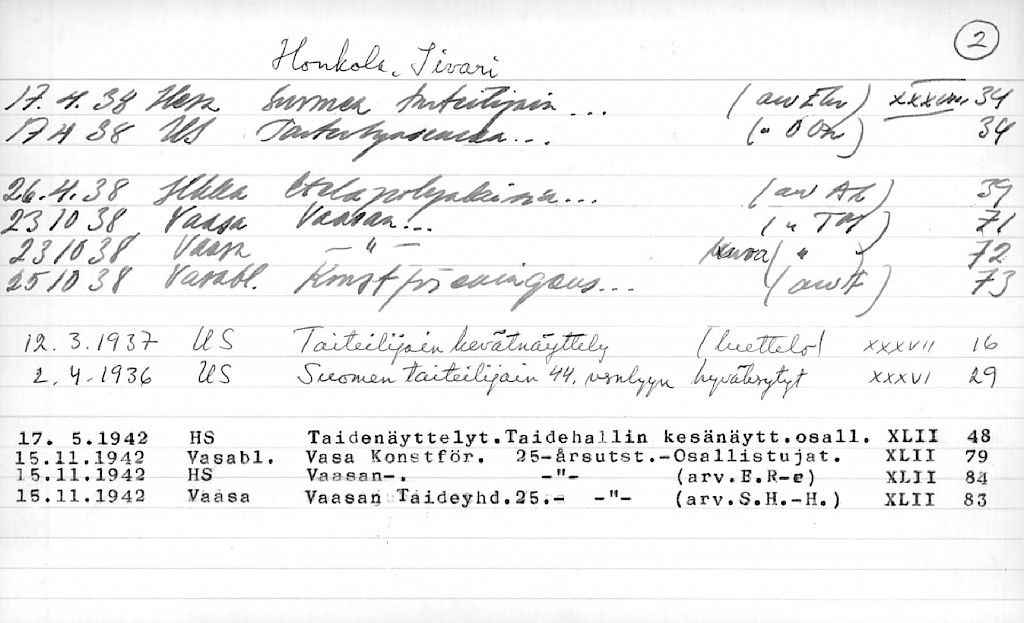 2
Honkola, Iivari
17.4.38 Hesa Suomen taiteilijain ... (arv EKr) XXXVIII 34
17 4 38 US Taiteilijaseuran... (" OOkr) 34
26.4.38 Ilkka Etelapohjalaisia... (arv AL) 39
23 10 38 Vaasa Vaasan... (" TM) 71
23 10 38 Vaasa — " — kuva ( " ) 72
25 10 38 Vasabl. Konstföreningens... (arv F) 73
12. 3.1937 US Taiteilijain kevätnäyttely (luettelo) XXXVII 16
2. 4.1936 US Suomen taiteilijain 44. vsnlyyn hyväksytyt XXXVI 29
17. 5.1942 HS Taidenäyttelyt.Taidehallin kesänäytt.osall. XLII 48
15.11.1942 Vasabl. Vasa Konstför. 25-årsutst.-Osallistujat. XLII 79
15.11.1942 HS Vaasan-. -"- (arv.E.R-e) XLII 84
15.11.1942 Vaasa Vaasan Taideyhd.25.- -"- (arv.S.H.-H.) XLII 83